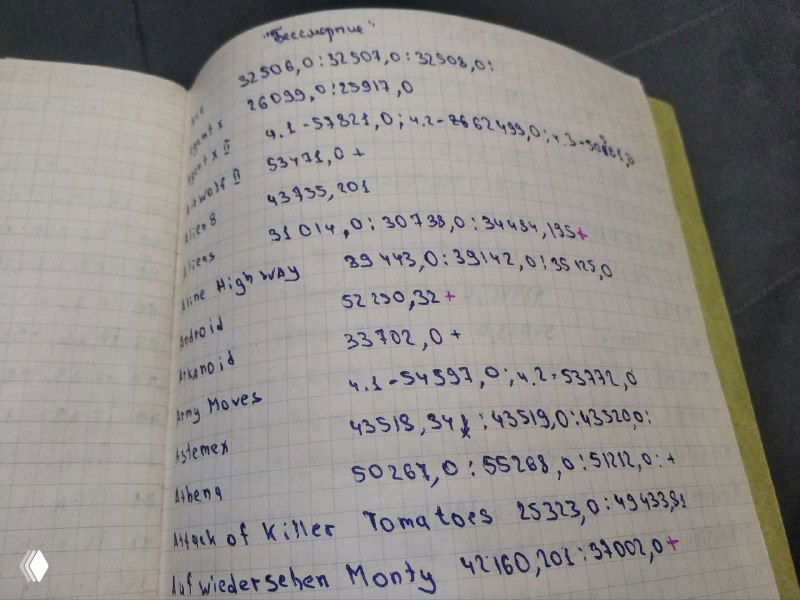 "Бессмертие"
Ace 32506,0:32507,0:32508,0:
Agent X 26099,0:25917,0
Agent X II ч.1-57821,0; ч.2- 62499,0; ч.3-
Airwolf II 53471,0 +
Alien 8 43735,201
Aliens 31014,0:30738,0:34484,195+
Aline High WAY 39443,0:39142,0:35125,0
Android 52290,32+
Arkanoid 33702,0+
Army Moves ч.1-54597,0; ч.2-53772,0
Astemex 43518,34 :43519,0:43520,0:
Athena 50267,0:55268,0:51212,0: +
Attack of Killer Tomatoes 25323,0:49433,81
Auf wiedersehen Monty 42160,201:37002,0+